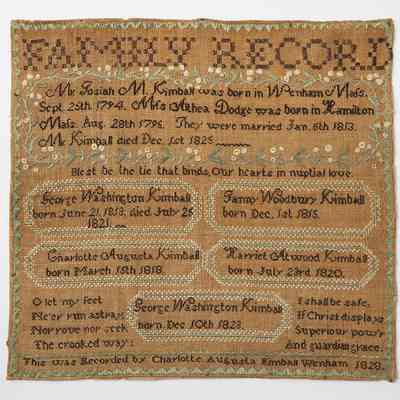 FAMILY RECORD
Mr Josiah M. Kimball was born in Wenham Mass.
Sept. 25th 1794. Miss Althea Dodge was born in Hamilton
Mass. Aug. 28th 1796. They were married Jan. 6th 1813.
Mr Kimball died Dec. 1st 1825
Blest be the tie that binds, Our hearts in nuptial love.
George Washington Kimball
born June 21 1813. died July 25
1821.
Fanny Woodbury Kimball
born Dec. 1st 1815.
Charlotte Augusta Kimball
born March 15th 1818.
Harriet Atwood Kimball
born July 23rd 1820.
O let my feet
Ne'er run astray:
Nor rove nor seek
The crooked way:
George Washington Kimball
born Dec 10th 1823
I shall be safe,
If Christ displays
Superiour powr
And guardian grace.
This was Recorded by Charlotte Augusta Kimball Wenham 1829.